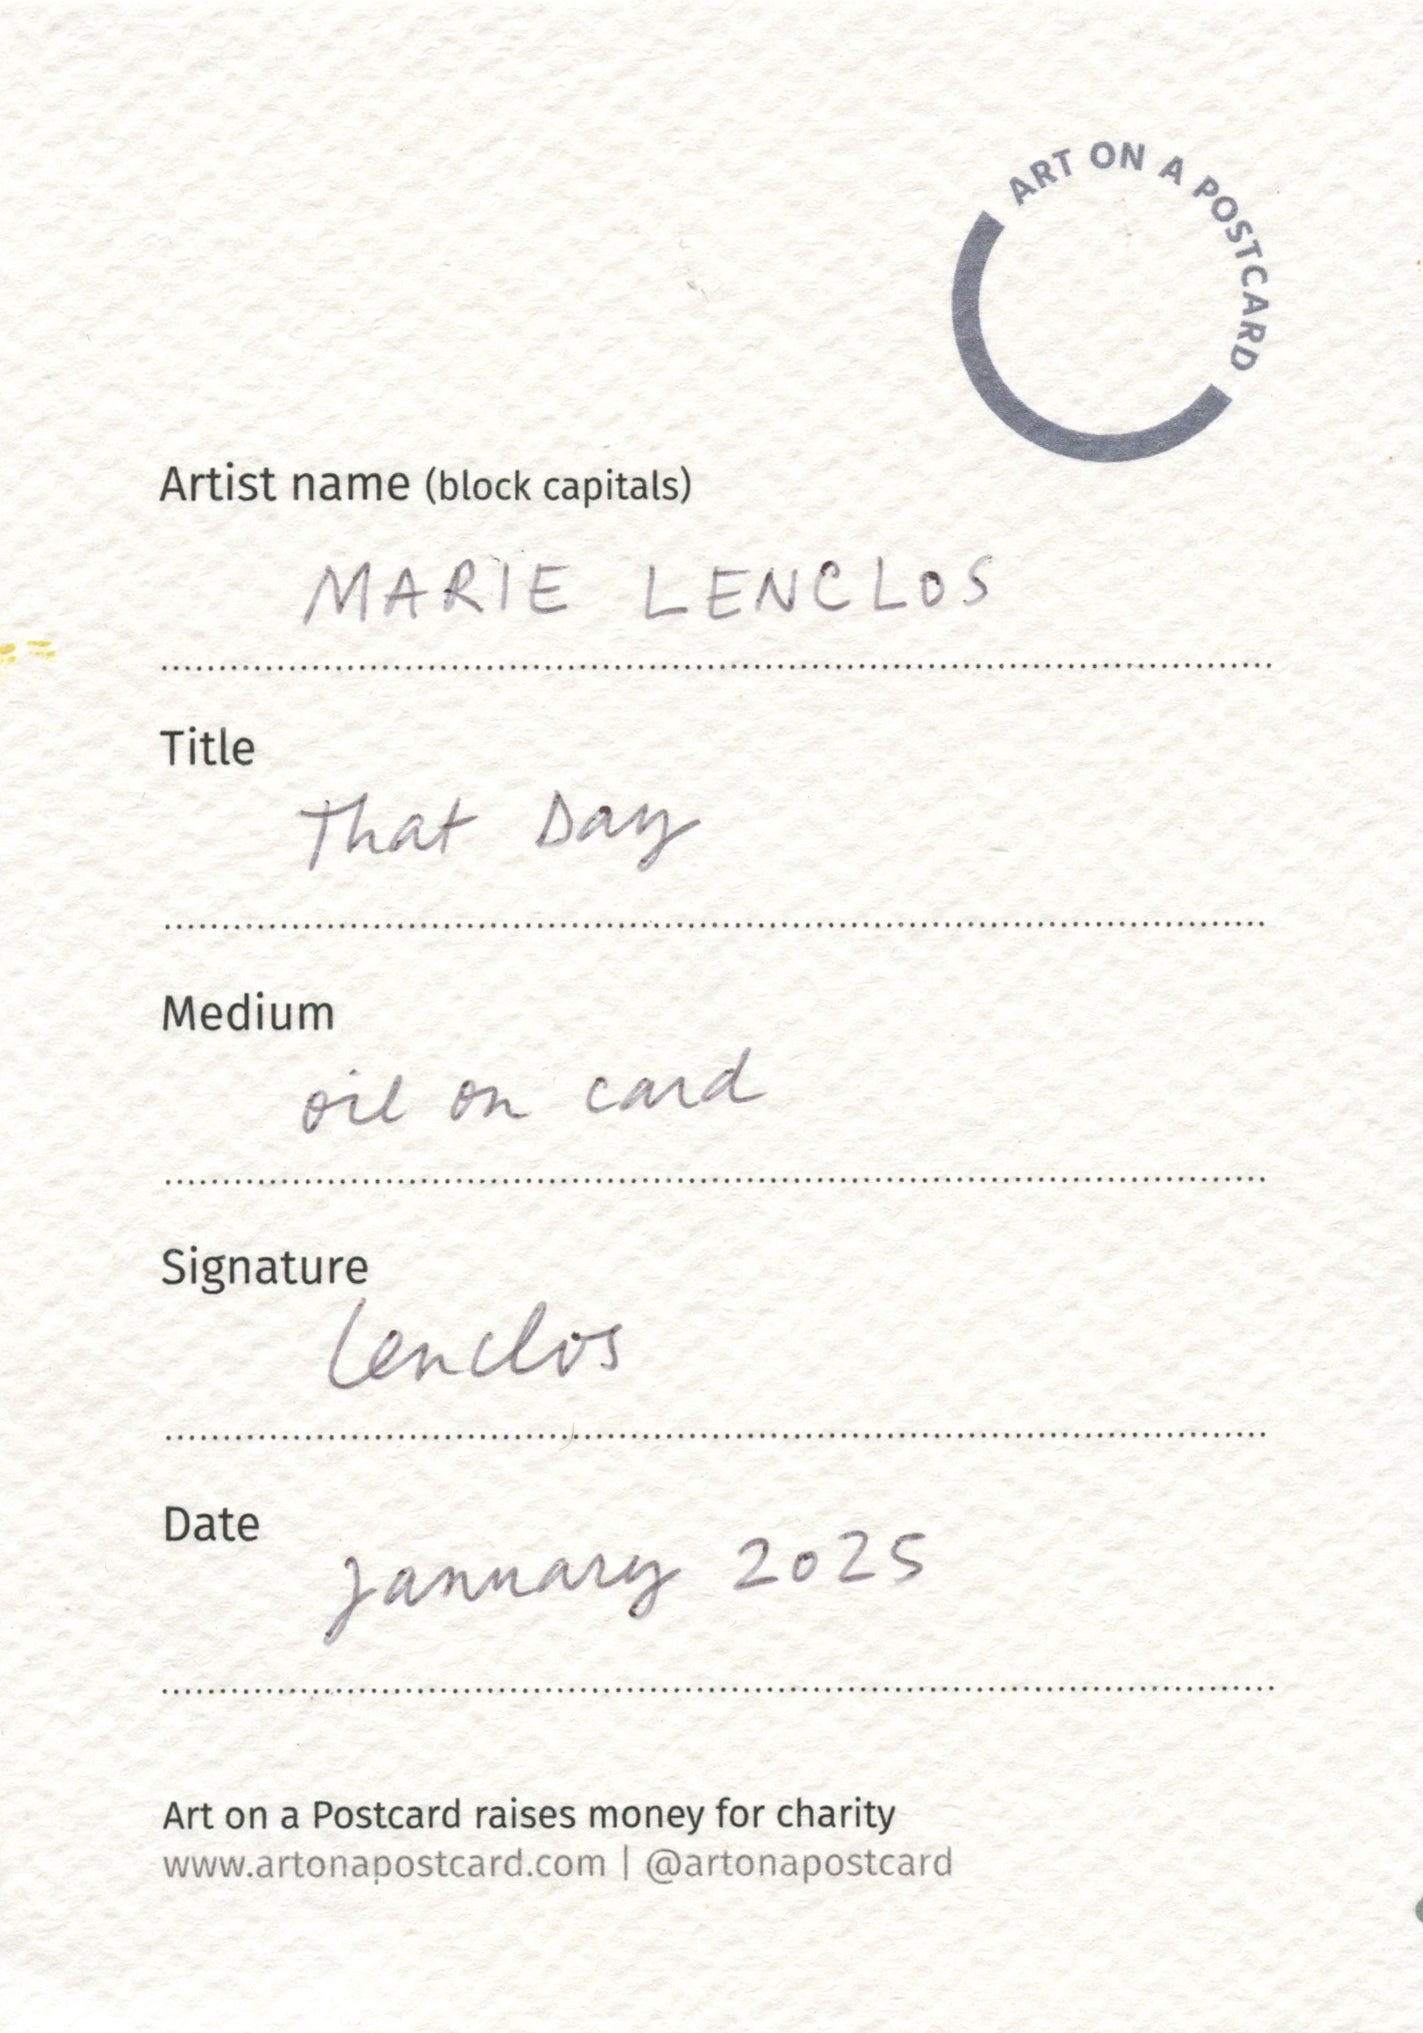 ART ON A POSTCARD
Artist name (block capitals)
MARIE LENCLOS
Title
That Day
Medium
oil on card
Signature
Lenclos
Date
January 2025
Art on a Postcard raises money for charity
www.artonapostcard.com | @artonapostcard